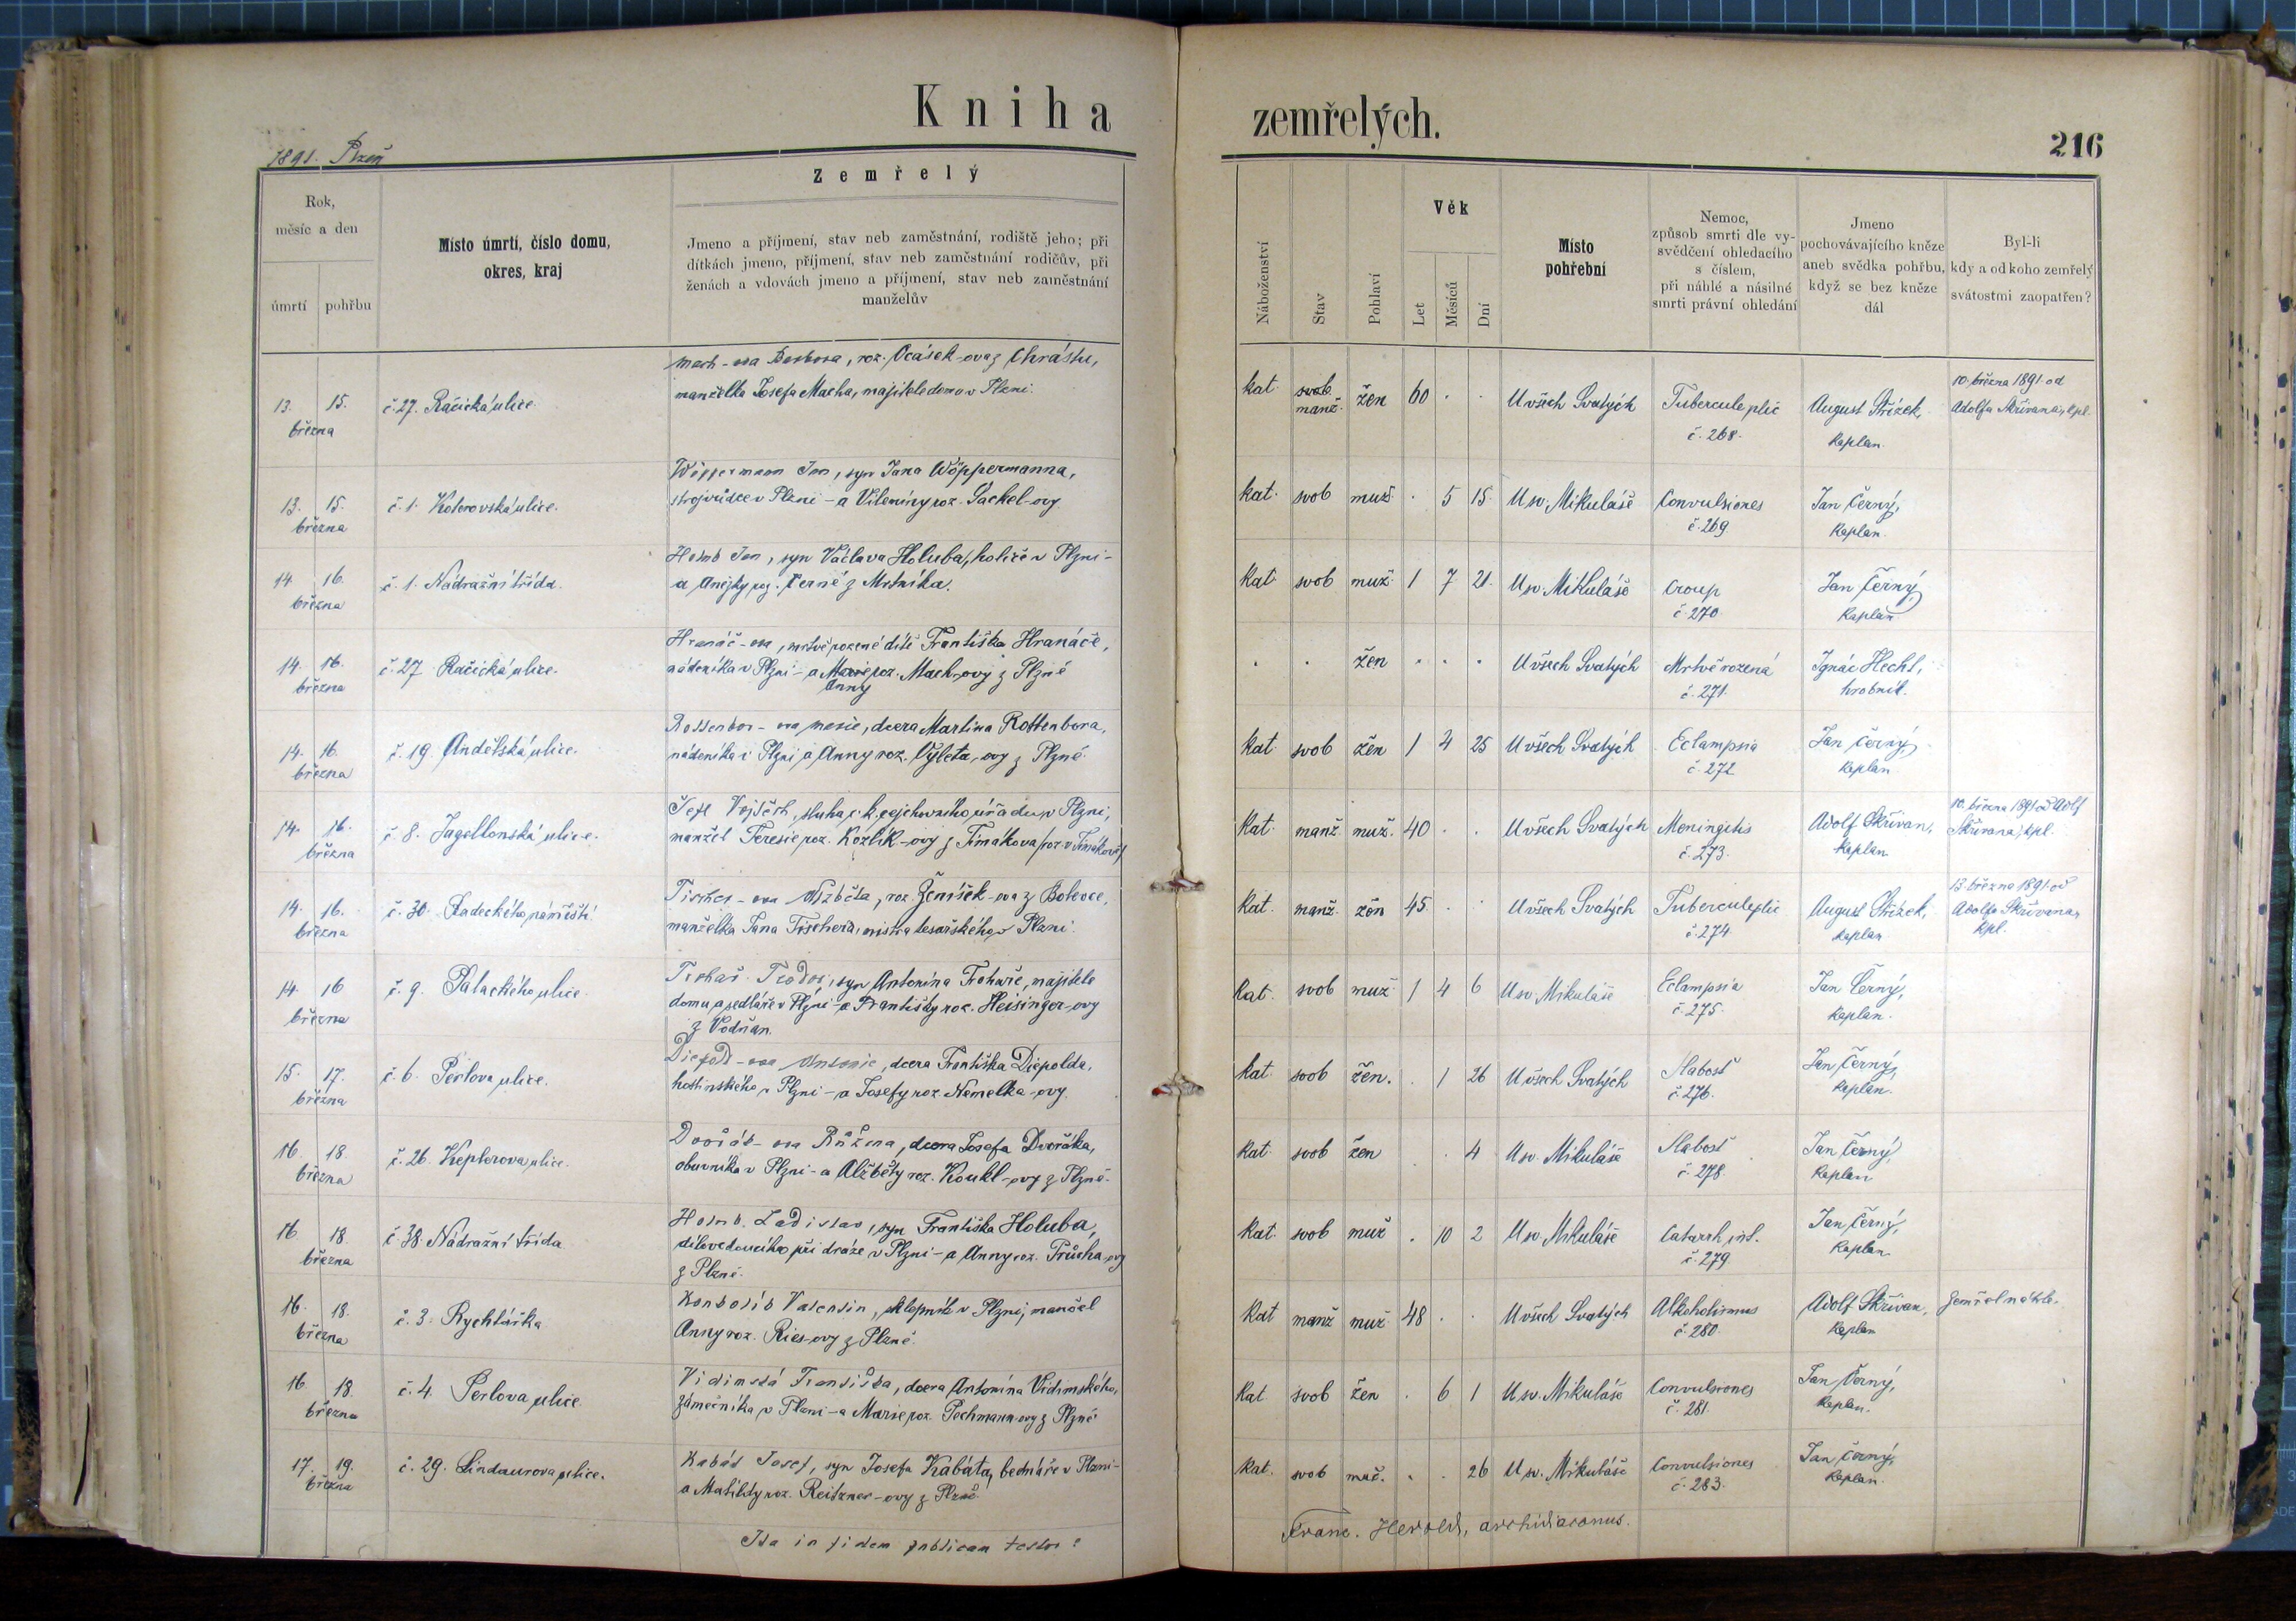 Kniha zemřelých.
1891. Plzeň
216
Zemřelý
Rok, měsíc a den
úmrtí
pohřbu
Místo úmrtí, číslo domu, okres, kraj
Jmeno a příjmení, stav neb zaměstnání, rodiště jeho; při
dítkách jmeno, příjmení, stav neb zaměstnání rodičův, při
ženách a vdovách jmeno a příjmení, stav neb zaměstnání
manželův
Náboženství
Stav
Pohlaví
Věk
Let
Měsíců
Dní
Místo pohřební
Nemoc,
způsob smrti dle vy-
svědčení ohledacího
s číslem,
při náhlé a násilné
smrti právní ohledání
Jmeno
pochovávajícího kněze
aneb svědka pohřbu,
když se bez kněze
dál
Byl-li
kdy a od koho zemřelý
svátostmi zaopatřen?
13. 15. března č. 27. Račická ulice.
Mach-ova Barbora, roz. Ocásek-ova z Chrástu,
manželka Josefa Macha, majitele domu v Plzni.
kat. svob. manž. žen 60 . . U všech Svatých Tubercule plic č. 268. August Střízek, kaplan. 10. března 1891 od Adolfa Skřivana, kpl.
13. 15. března č. 1. Koterovská ulice.
Wöppermann Jan, syn Jana Wöppermanna,
strojvůdce v Plzni - a Vilemíny roz. Sackel-ovy.
kat. svob muž. . 5 15. U sv. Mikuláše Convulsiones č. 269. Jan Černý, kaplan.
14. 16. března č. 1. Nádražní třída.
Holub Jan, syn Václava Holuba, holiče v Plzni -
a Anežky roz. Černé z Mrtníka.
kat. svob muž. 1 7 21. U sv. Mikuláše Croup č. 270 Jan Černý, kaplan
14. 16. března č. 27 Račická ulice.
Hranáč-ova, mrtvě rozené dítě Františka Hranáče,
nádeníka v Plzni - a Marie roz. Mach-ovy z Plzně
Anny
. . žen . . . U všech Svatých Mrtvě rozená č. 271. Ignác Hecht, hrobník.
14. 16. března č. 19 Andělská ulice.
Rottenbor-ova Marie, dcera Martina Rottenbora,
nádeníka v Plzni a Anny roz. Výleta-ovy z Plzně.
kat svob žen 1 4 25 U všech Svatých Eclampsia č. 272 Jan Černý, kaplan
14. 16. března č. 8. Jagellonská ulice.
Vojtěch, sluha c. k. cejchovního úřadu v Plzni,
manžel Teresie roz. Kozlík-ovy z Tímákova (roz. v Tímákově)
kat. manž. muž. 40 . . U všech Svatých Meningitis č. 273. Adolf Skřivan, kaplan 10. března 1891 od Adolf Skřivana, kpl.
14. 16. března č. 30. Radeckého náměstí.
Fischer-ova Alžběta, roz. Ženíšek-ova z Bolevce,
manželka Jana Fischera, mistra tesařského v Plzni.
kat. manž. žen 45. . . U všech Svatých Tubercule plic č. 274. August Střízek, kaplan 13. března 1891 od Adolfa Skřivana, kpl.
14. 16 března č. 9. Palackého ulice.
Teodor, syn Antonína majitele
domu a sedláře v Plzni - a Františky roz. Heisinger-ovy
z Vodňan.
kat. svob muž 1 4 6 U sv. Mikuláše Eclampsia č. 275. Jan Černý, kaplan.
15. 17. března č. 6. Perlova ulice.
Diepold-ova Antonie, dcera Františka Diepolda,
hostinského v Plzni - a Josefy roz. Nemelka-ovy.
kat. svob žen. . 1 26 U všech Svatých Slabost č. 276. Jan Černý, kaplan.
16. 18. března č. 26. Keplerova ulice.
Dvořák-ova Růžena, dcera Josefa Dvořáka,
obuvníka v Plzni - a Alžběty roz. Koukl-ovy z Plzně.
kat. svob žen . . 4 U sv. Mikuláše Slabost č. 278. Jan Černý, kaplan
16. 18. března č. 38. Nádražní třída
Holub Ladislav, syn Františka Holuba,
dílovedoucího při dráze v Plzni - a Anny roz. Průcha-ovy
z Plzně.
kat. svob muž . 10 2 U sv. Mikuláše Catarrh int. č. 279. Jan Černý, kaplan
16. 18. března č. 3. Rychtářka
Valentin, sklepník v Plzni, manžel
Anny roz. Ries-ovy z Plzně.
kat manž muž 48 . . U všech Svatých Alkoholismus č. 280. Adolf Skřivan, kaplan Zemřel náhle.
16 18. března č. 4. Perlova ulice
Vidimská Františka, dcera Antonína Vidimského,
zámečníka v Plzni - a Marie roz. Pechmann-ovy z Plzně
kat svob žen . 6 1 U sv. Mikuláše Convulsiones č. 281. Jan Černý, kaplan.
17. 19. března č. 29. Lindaurova ulice.
Kabát Josef, syn Josefa Kabáta, bednáře v Plzni -
a Matildy roz. Reitzner-ovy z Plzně.
kat. svob muž. . . 26 U sv. Mikuláše Convulsiones č. 283. Jan Černý, kaplan.
Ita in fidem publicam testor:
Franc. Herold, archidiaconus.